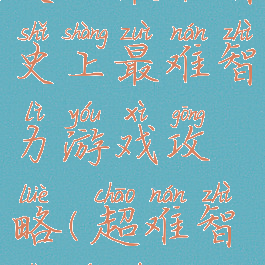 shǐ shàng zuì nán zhì
史上最难智
lì yóu xì gōng
力游戏攻
lüè chāo nán zhì
略(超难智